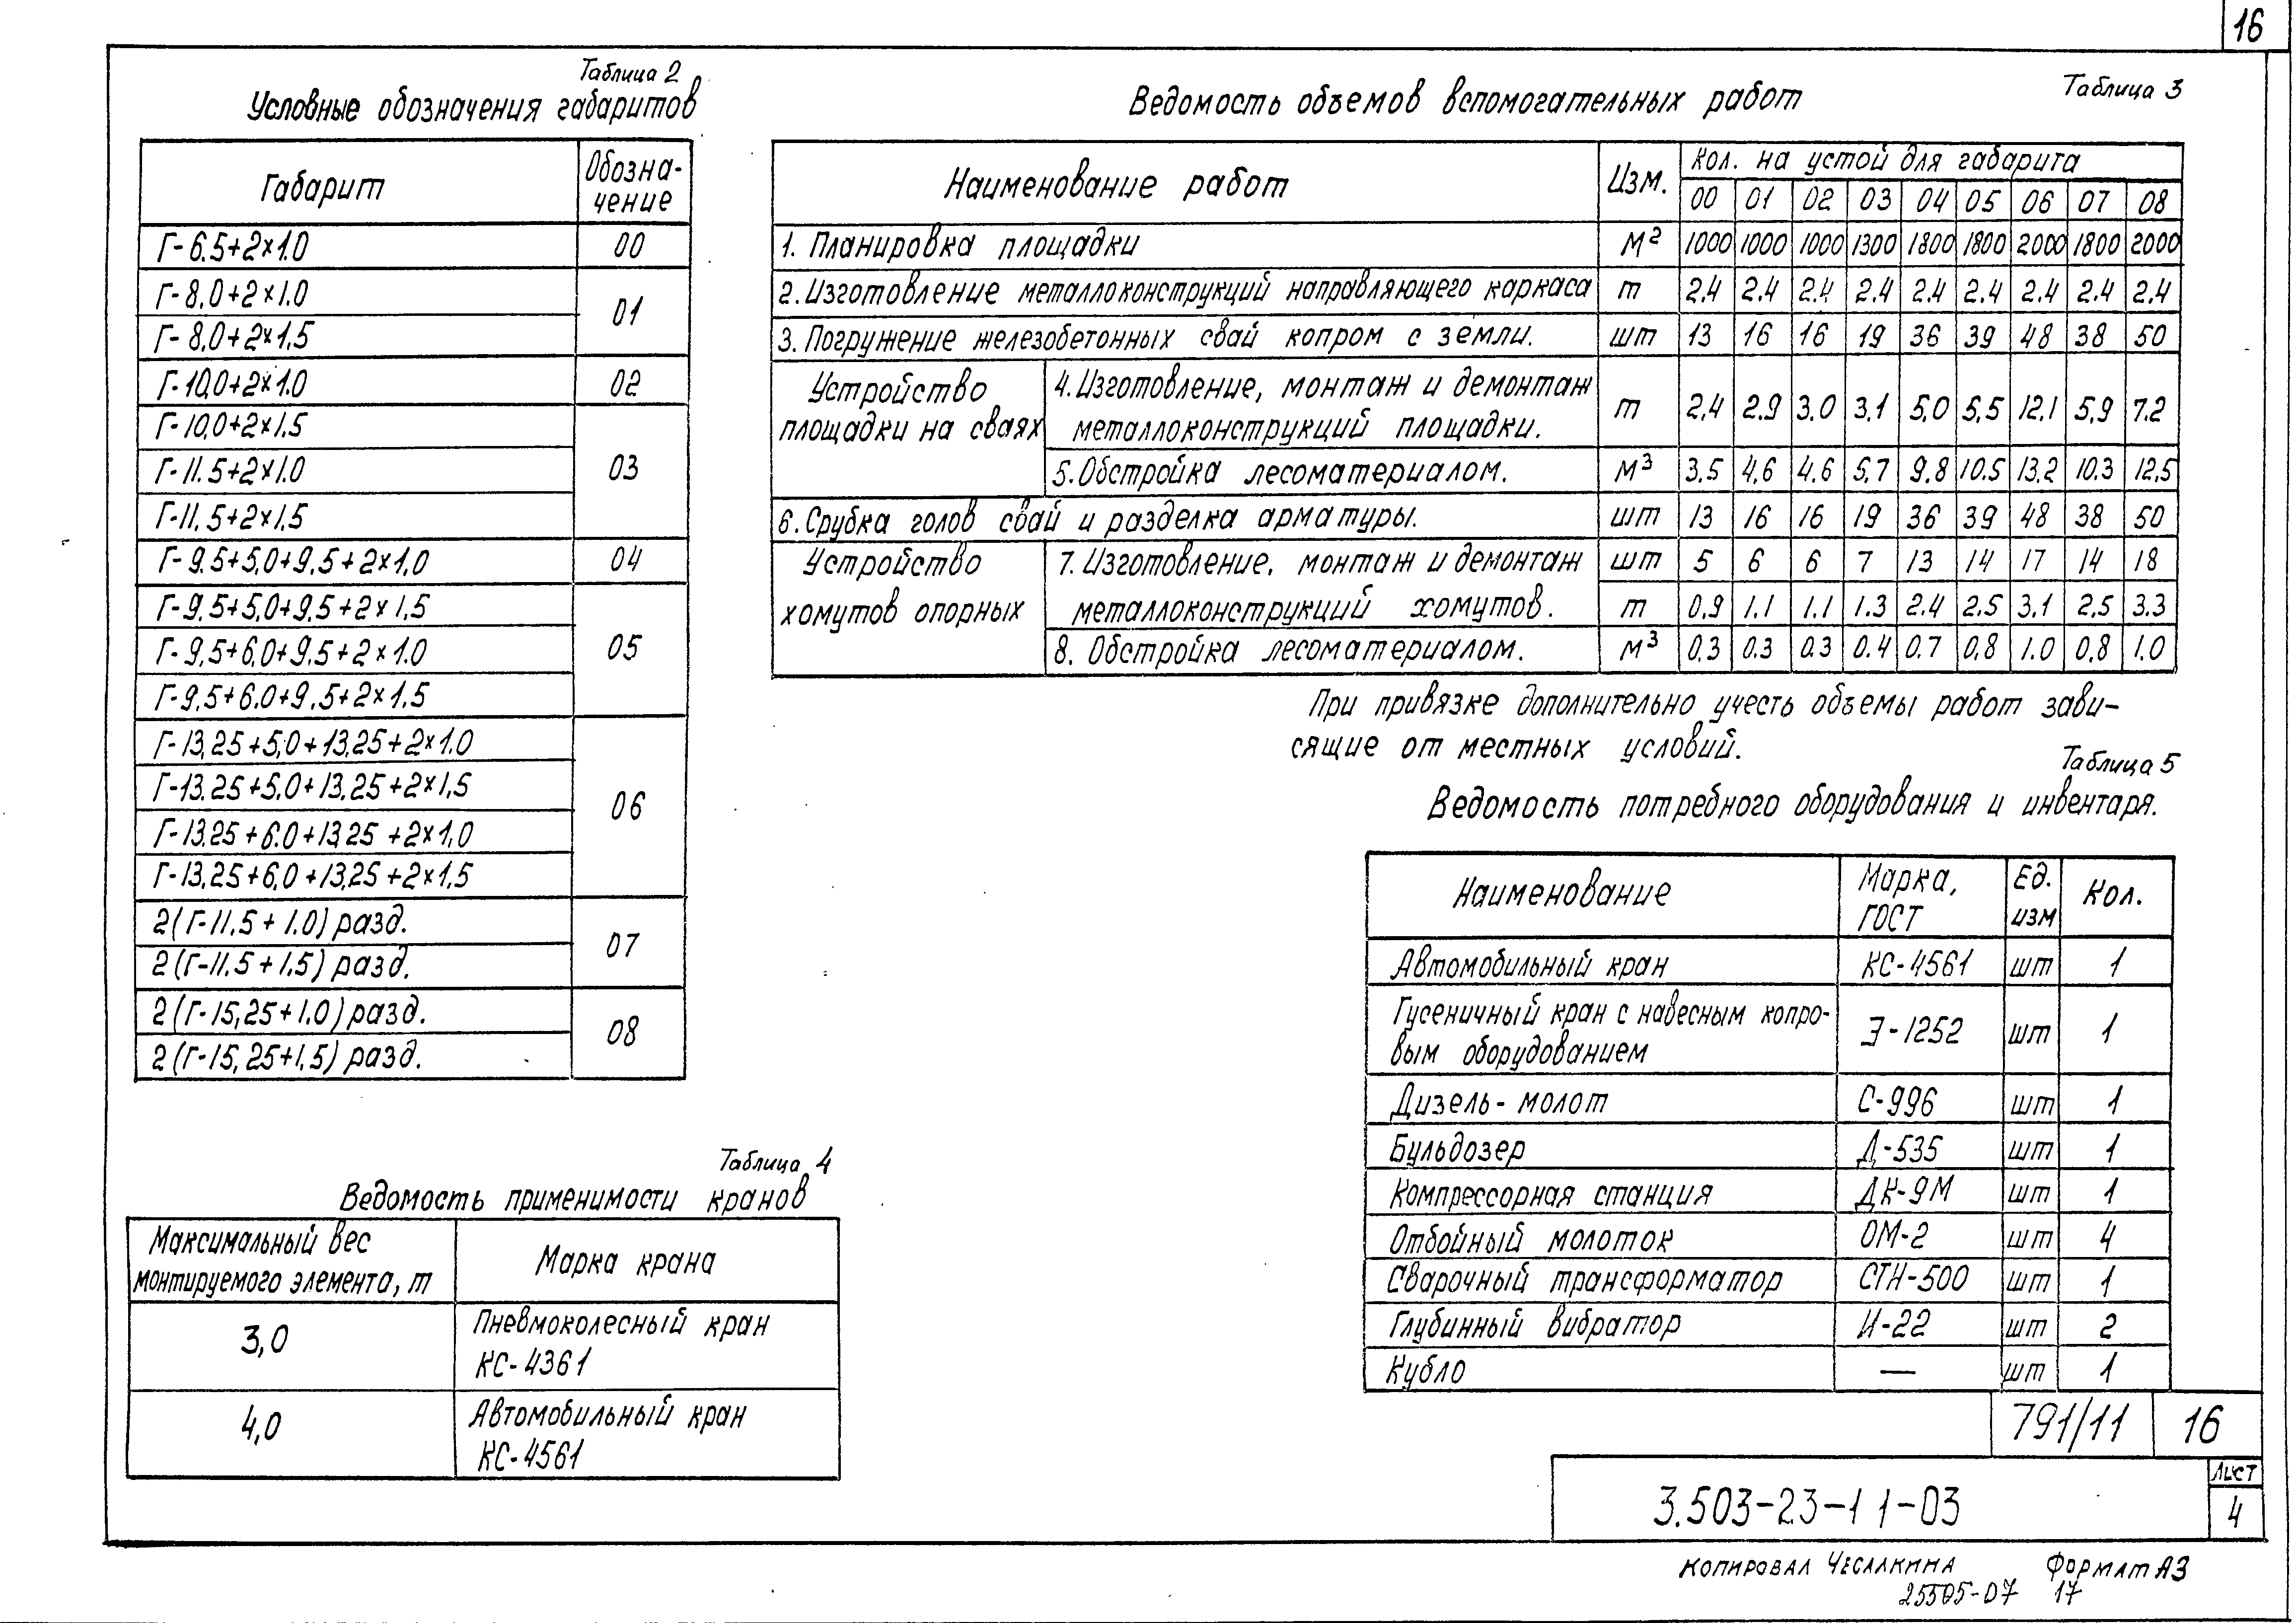 16
Таблица 2
Условные обозначения габаритов
Габарит Обозна-
чение
Г-6.5+2×1.0 00
Г-8,0+2×1.0 01
Г-8,0+2×1,5
Г-10,0+2×1.0 02
Г-10,0+2×1.5 03
Г-11.5+2×1.0
Г-11.5+2×1.5
Г-9.5+5,0+9,5+2×1,0 04
Г-9.5+5,0+9,5+2×1,5 05
Г-9,5+6,0+9,5+2×1.0
Г-9,5+6.0+9,5+2×1,5
Г-13,25+5,0+13,25+2×1.0 06
Г-13.25+5,0+13,25+2×1,5
Г-13.25+6.0+13,25+2×1,0
Г-13,25+6,0+13,25+2×1,5
2(Г-11.5+1.0) разд. 07
2(Г-11.5+1.5) разд.
2(Г-15,25+1,0) разд. 08
2(Г-15,25+1,5) разд.
Таблица 3
Ведомость объемов вспомогательных работ
Наименование работ Изм. Кол. на устой для габарита
00 01 02 03 04 05 06 07 08
1. Планировка площадки м² 1000 1000 1000 1300 1800 1800 2000 1800 2000
2. Изготовление металлоконструкций направляющего каркаса т 2.4 2.4 2.4 2.4 2.4 2.4 2.4 2.4 2.4
3. Погружение железобетонных свай копром с земли. шт 13 16 16 19 36 39 48 38 50
Устройство
площадки на сваях
4. Изготовление, монтаж и демонтаж
металлоконструкций площадки. т 2,4 2.9 3,0 3,1 5,0 5,5 12,1 5,9 7.2
5. Обстройка лесоматериалом. м³ 3.5 4,6 4.6 5,7 9.8 10.5 13.2 10.3 12,5
6. Срубка голов свай и разделка арматуры. шт 13 16 16 19 36 39 48 38 50
Устройство
хомутов опорных
7. Изготовление, монтаж и демонтаж шт 5 6 6 7 13 14 17 14 18
металлоконструкций хомутов. т 0,9 1.1 1.1 1.3 2.4 2.5 3.1 2.5 3.3
8. Обстройка лесоматериалом. м³ 0.3 0.3 0.3 0.4 0.7 0,8 1.0 0,8 1.0
При привязке дополнительно учесть объемы работ зави-
сящие от местных условий.
Таблица 5
Ведомость потребного оборудования и инвентаря.
Наименование Марка, ГОСТ Ед. изм Кол.
Автомобильный кран КС-4561 шт 1
Гусеничный кран с навесным копро-
вым оборудованием Э-1252 шт 1
Дизель-молот С-996 шт 1
Бульдозер Д-535 шт 1
Компрессорная станция ДК-9М шт 1
Отбойный молоток ОМ-2 шт 4
Сварочный трансформатор СТН-500 шт 1
Глубинный вибратор И-22 шт 2
Кубло — шт 1
Таблица 4
Ведомость применимости кранов
Максимальный вес
монтируемого элемента, т Марка крана
3,0 Пневмоколесный кран
КС-4361
4,0 Автомобильный кран
КС-4561
791/11 16
3.503-23-11-03
Лист
4
Копировал Чесалкина Формат А3
25505-07 17